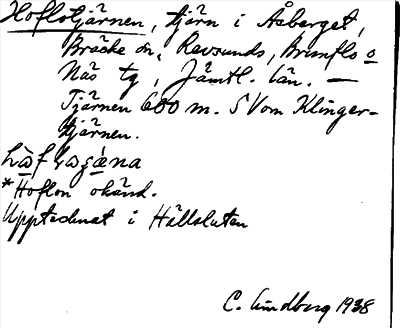 Hoflotjärnen, tjärn i Åsberget,
Bräcke sn, Ravsunds, Brunflo o
Näs tg, Jämtl. län. —
Tjärnen 600 m. SV om Klinger-
tjärnen.
*Hoflon okänd.
Upptecknat i Hållsluten
C. Lindberg 1938